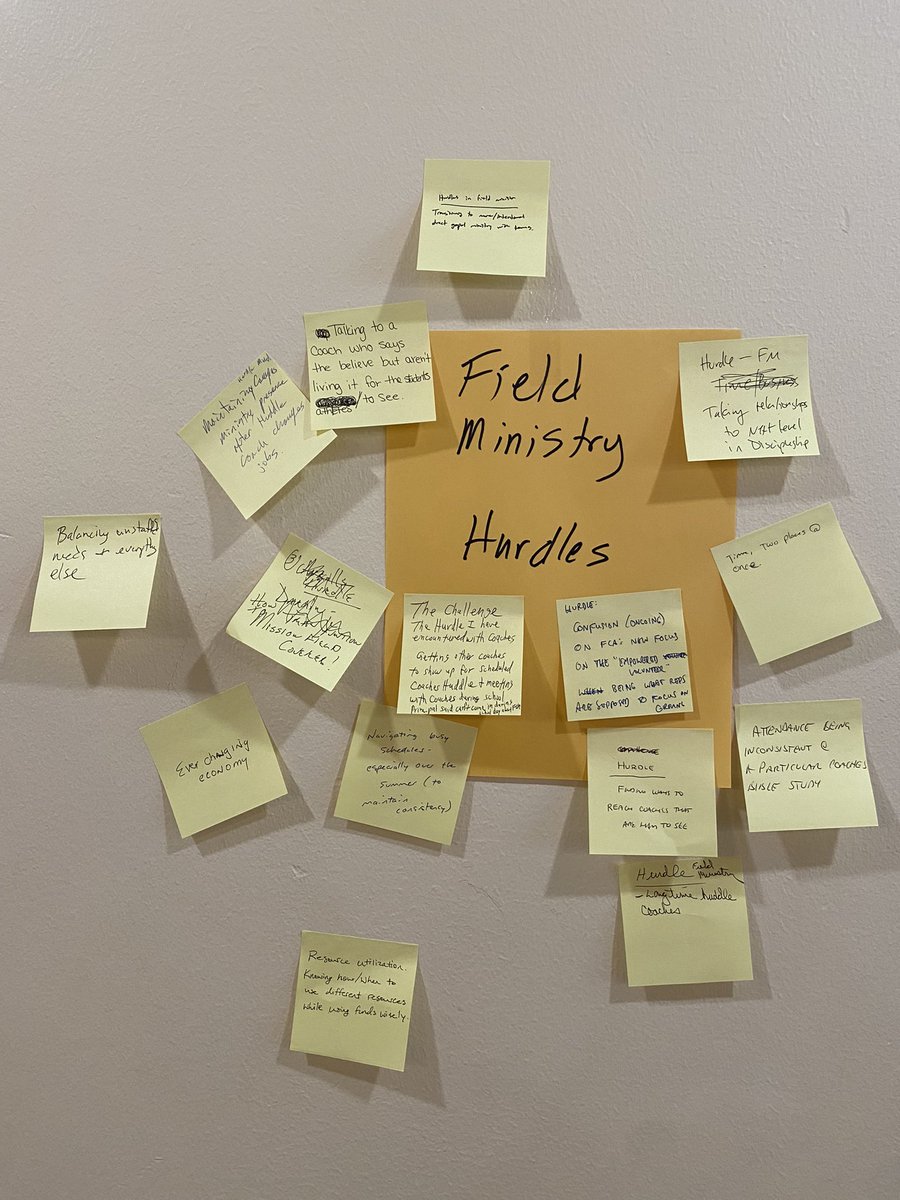 Hurdles in field
Transitioning to more/intentional
direct gospel ministry with teams.
Talking to a
Coach who says
the believe but aren't
living it for the students
athletes / to see.
Maintaining Camps
ministry presence
after Huddle
Coach changes
jobs.
Field
Ministry
Hurdles
Hurdle - FM
Taking Relationships
to Next level
in Discipleship
Balancing
needs + everything
else
Time, Two places @
once
HURDLE
How
Mission Field
Covered!
The Challenge
The Hurdle I have
encountered with Coaches
Getting other coaches
to show up for scheduled
Coaches Huddle + meeting
with Coaches during school
Principal said can't come in during
HURDLE:
CONFUSION (ONGOING)
ON FCA'S NEW FOCUS
ON THE "EMPOWERED
VOLUNTEER"
WHEN BEING WHAT REPS
ARE SUPPOSED TO FOCUS ON
Ever changing
economy
Navigating busy
schedules -
especially over the
summer (to
maintain
consistency)
HURDLE
FINDING WAYS TO
REACH COACHES THAT
ARE HARD TO SEE
ATTENDANCE BEING
INCONSISTENT @
A PARTICULAR COACHES
BIBLE STUDY
Hurdle Field
Ministry
- Longtime huddle
Coaches
Resource utilization.
Knowing how/when to
use different resources
while using funds wisely.